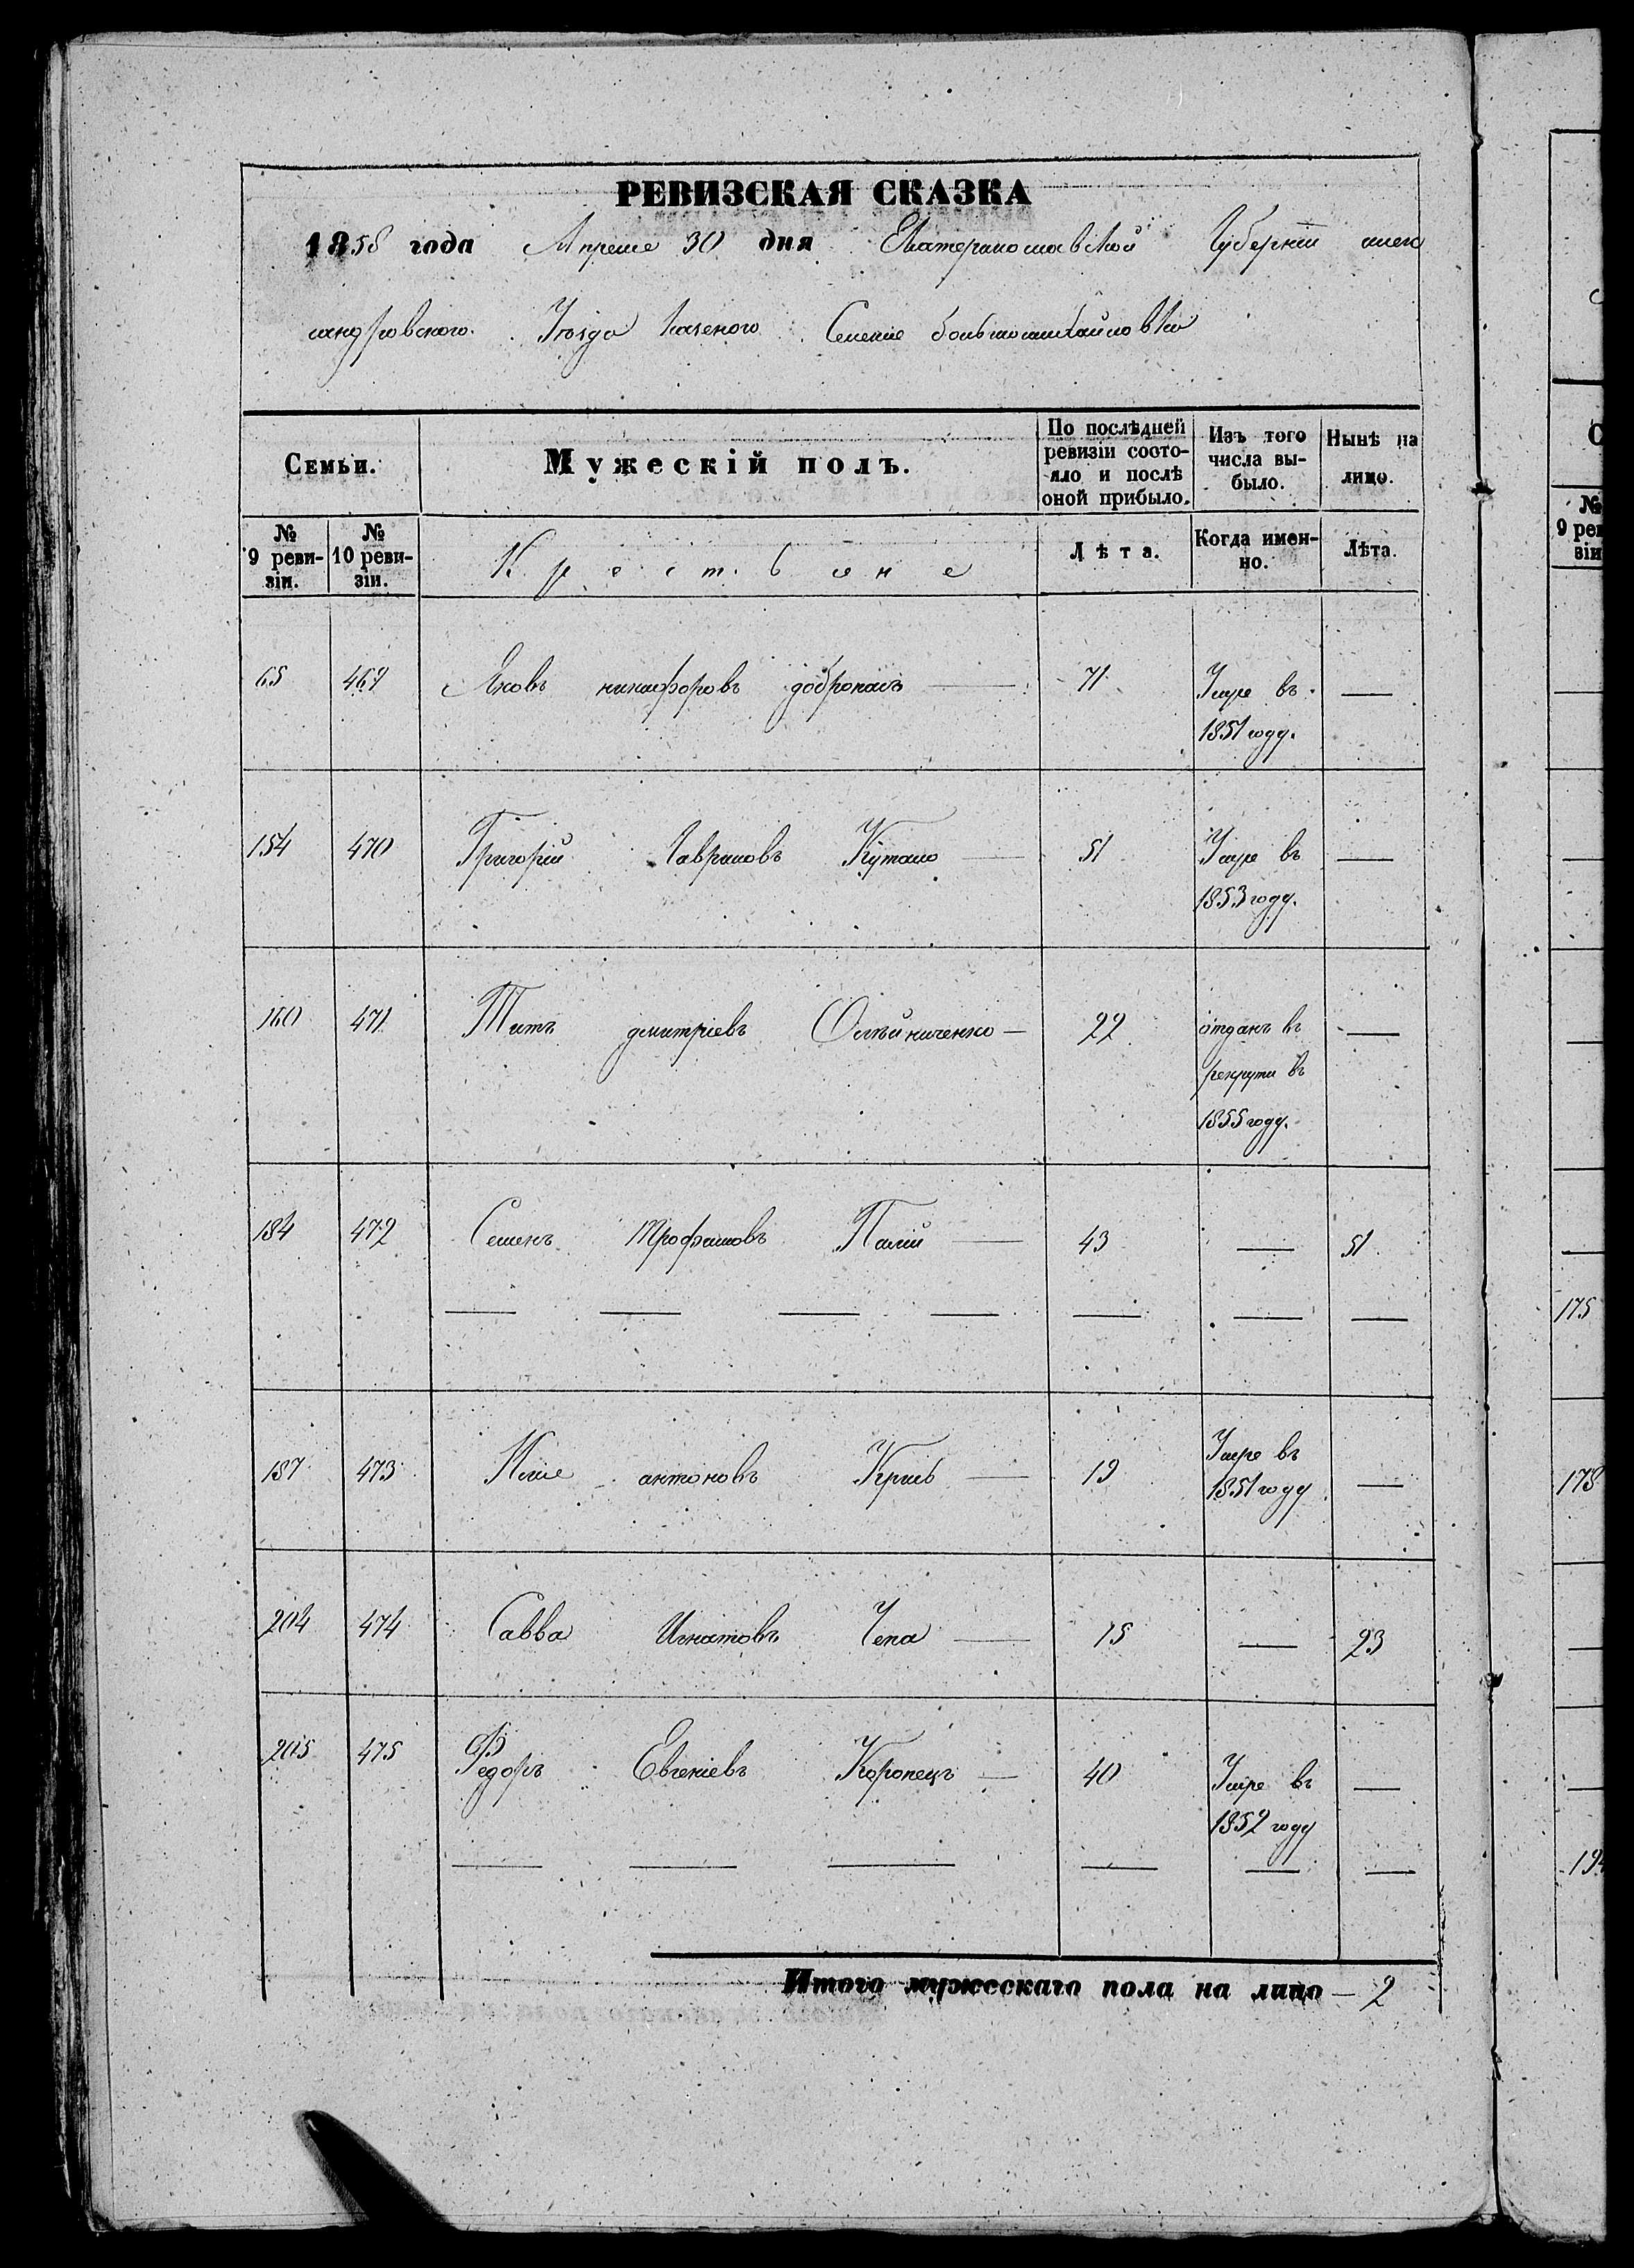 РЕВИЗСКАЯ СКАЗКА
1858 года Апреля 30 дня Екатеринославской Губерніи алек
сандровского Уезда Казеного Селенія большомихайловки
Семьи.
Мужескій полъ.
По послѣдней ревизіи состо-
яло и послѣ
оной прибыло.
Изъ того
числа вы-
было.
Нынѣ на
лицо.
№
9 реви-
зіи.
№
10 реви-
зіи.
Крестьяне
Лѣта.
Когда имен-
но.
Лѣта.
65 469 Яковъ никифоровъ добропасъ — 71 Умре въ —
1851 году.
154 470 Григорій Гавриловъ Кутало — 51 Умре въ —
1853 году.
160 471 Титъ дмитріевъ Олѣйниченко — 22 отданъ въ —
рекруты въ
1855 году.
184 472 Семенъ Трофимовъ Палій — 43 — 51
— — — — — — —
187 473 антоновъ — 19 Умре въ
1851 году —
204 474 Савва Игнатовъ Чепа — 15 — 23
205 475 Федоръ Евгеніевъ Коропецъ — 40 Умре въ —
1852 году
— — — — — —
Итого мужескаго пола на лицо — 2
С
№
9 рев
зіи
175
178
194